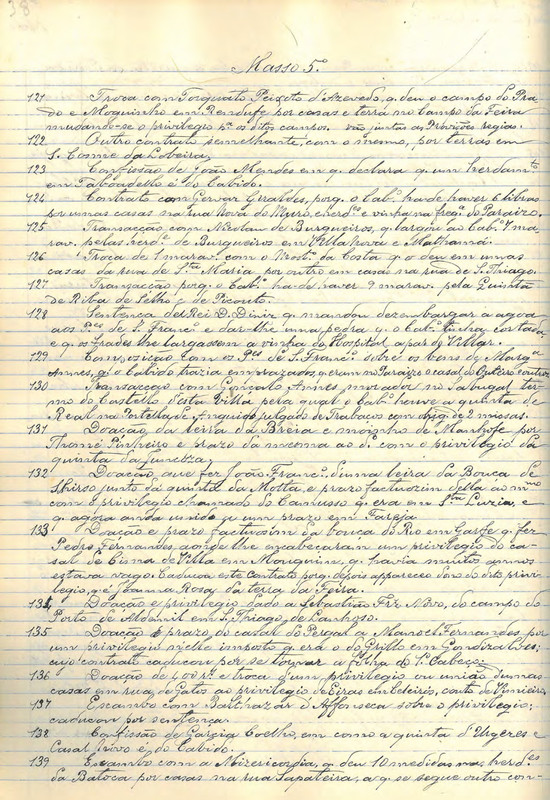 38
Masso 5º
121 Troca com Torquato Peixoto d'Azevedo, q. deu o campo do Pra-
do e Moquinho em Rendufe por casas e terra no Campo da Feira
mudando-se o privilegio pª os ditos campos. Vão juntas as Provizões regias.
122 Outro contrato semelhante, com o mesmo, por terras em
S. Cosme da Lobeira.
123 Confissão de João Mendes em q. declara q. um herdamtº
em Taboadello é do Cabido.
124 Contrato com Gervaz Giraldes, porq. o Cabº hade haver 6 libras
por umas casas na rua Nova do Muro, e herdes e vinha na fregª do Paraizo.
125 Transacção com Nicolau de Burgueiros, q. largou ao Cabº 1 ma-
rav. pelas herdes de Burgueiros em Villa Nova e Mathamá.
126 Troca de 1 marav. com o da Costa q. o deu em umas
casas da rua de Sta Maria por outro em casas na rua de S. Thiago.
127 Transacção porq. o Cabº ha-de haver 9 marav. pela Quintã
de Riba de Selho e de Picouto.
128 Sentença del Rei D. Diniz q. mandou dezembargar a agoa
aos Pes de S. Francº e dar-lhe uma pedra q. o Cabº tinha cortada
e q. os frades lhe largassem a vinha do Hospital a par de Villar.
129 Composição com os Pes de S. Francº sobre os bens de Margª
Annes, q. o Cabido trazia emprazados, e eram no Paraizo o casal do Outeiro e outros
130 Transacção com Gonçalo Annes morador no Sabugal ter-
mo do Castello d'esta Villa pela qual o Cabº houve a quinta de
Real na Portella de Anquião julgado de Trabaços com obrigº de 2 missas.
131 Doação da leira da Breia e moinho de Manhofe por
Thomé Pinheiro e prazo da mesma ao dº com o privilegio da
quinta da Juncoza;
132 Doação, que fez João Francº d'uma leira da Bouca de
junto da quinta da Motta, e prazo factuozim della ao mmo
com o privilegio chamado do Camusso q. era em Sta Luzia, e
q. agora anda unido ja um prazo em Fareja.
133 Doação e prazo factuosim da bouca do Rio em Garfe q. fez
Pedro Fernandes aonde lhe encabeçaram um privilegio do ca-
sal de Cima de Villa em Mouquim, q. havia muitos annos
estava vago. Caducou este Contrato porq. depois appareceo dono do dito privi-
legio, q. é Joanna Rosa da terra da Feira.
134 Doação e privilegio dado a Sebastião Frz Novo, do campo do
Porto de Abbomil em S. Thiago de Lanhoso.
135 Doação e prazo, do casal do Pergal a Manoel Fernandes por
um privilegio n'elle imposto q. era o do Grillo em Gondizalves;
cujo contrato caducou por se tornar a filha do 1º Cabeça.
136 Doação de 400 rs. e troca d'um privilegio ou união d'umas
casas em rua de Gatos ao privilegio de Eiras em Celeiros, couto de Vimieiro
137 Escambo com Balthazar d'Affonseca sobre o privilegio;
caducou por sentença.
138 Confissão de Garcia Coelho, em como a quinta d'Urgezes e
Casal novo é do Cabido.
139 Escambo com a Misericordia, q. deu 10 medidas nas herdes
da Batoca por casas na rua Sapateira, a q. se segue outro con-